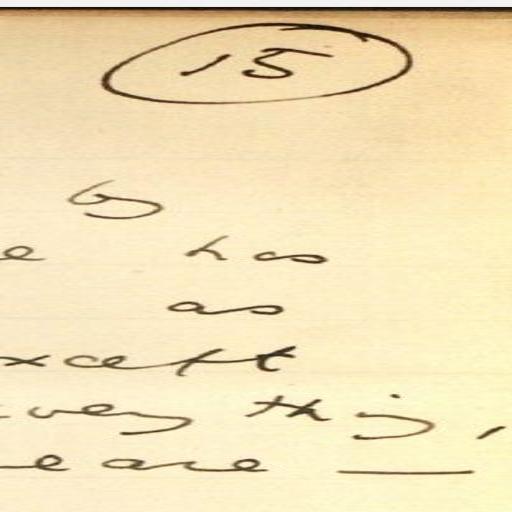 15
by
e has
as
xcept
very thing,
e are —